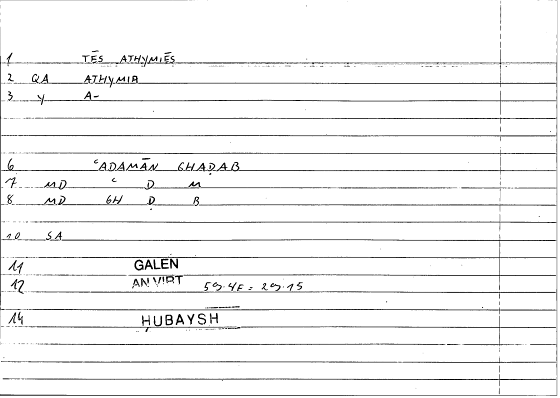 1 TĒS ATHYMIĒS
2 QA ATHYMIA
3 Y A-
6 ʿADAMĀN GHAḌAB
7 MD ʿ D M
8 MD GH Ḍ B
10 SA
11 GALEN
12 AN VIRT = 29.15
14 ḤUBAYSH